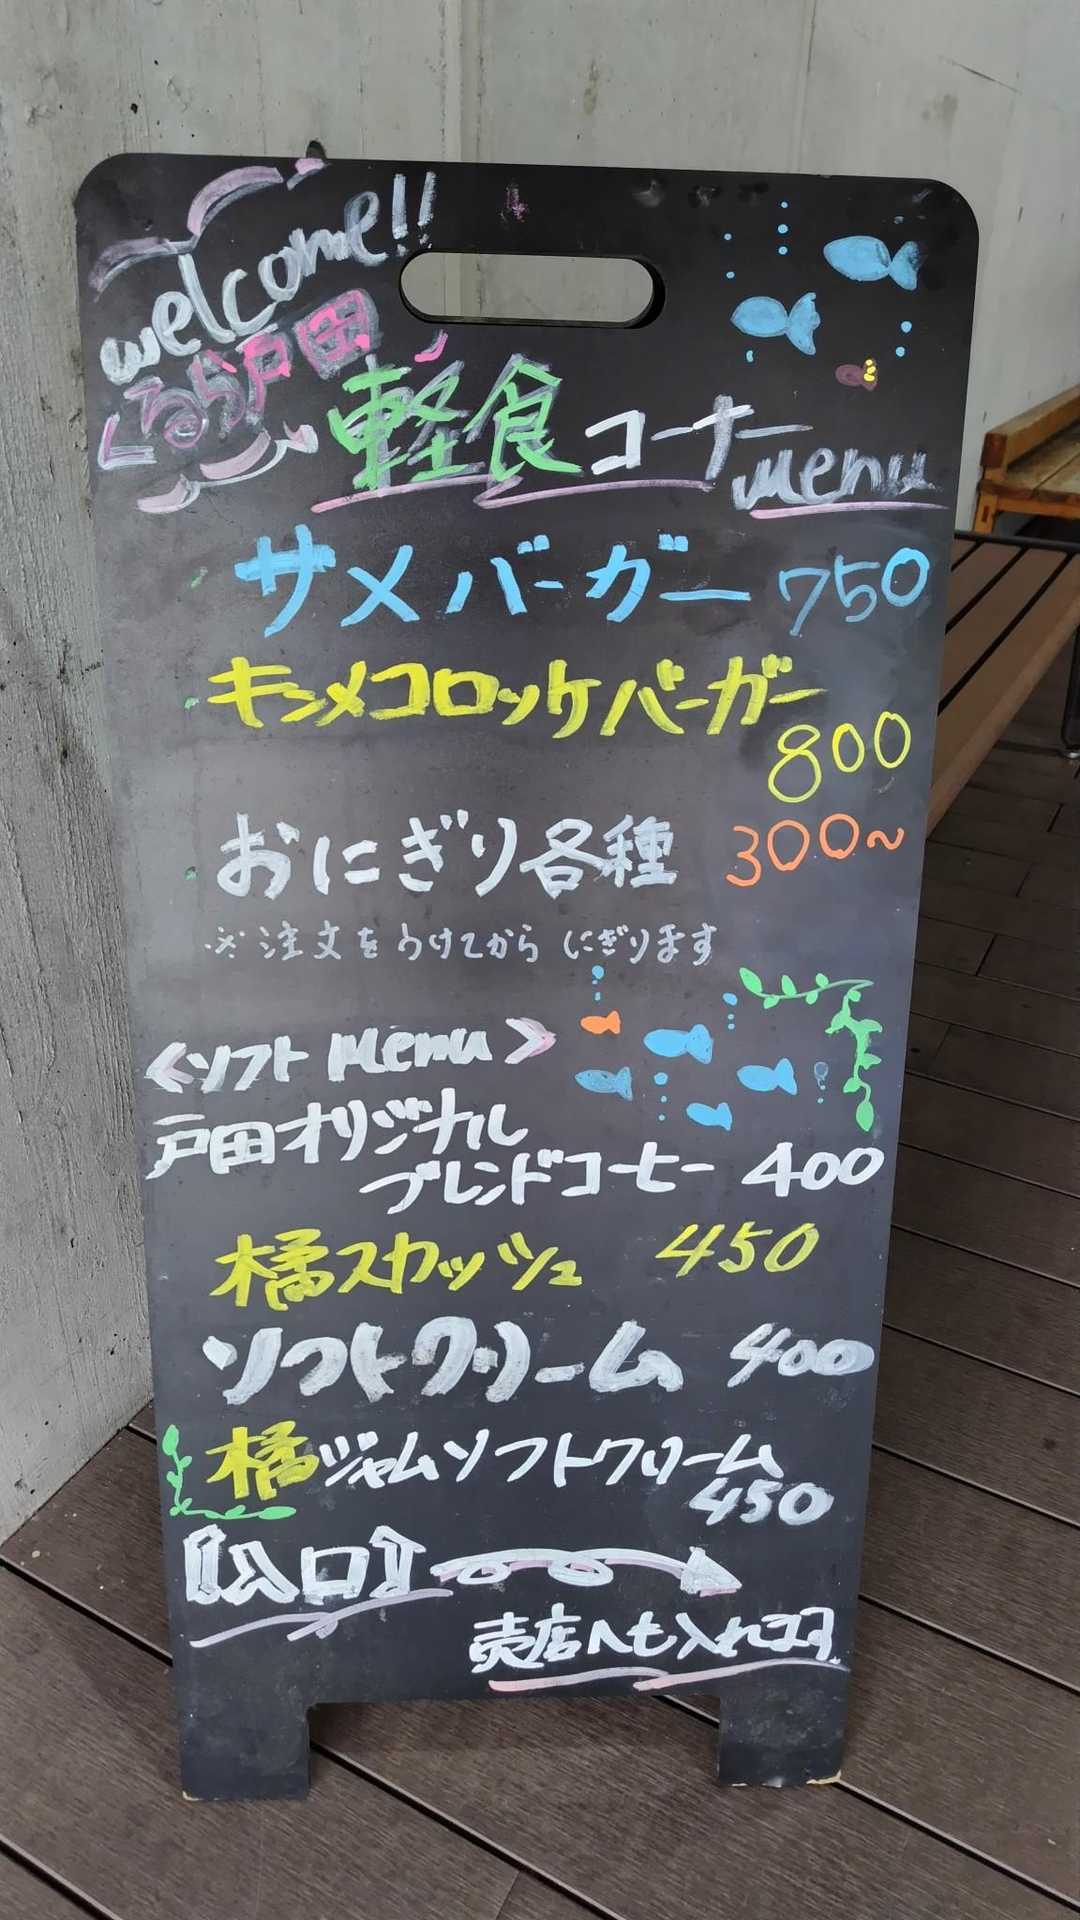 welcome!!
くるら戸田
軽食コーナー menu
サメバーガー 750
キンメコロッケバーガー
800
おにぎり各種 300~
※注文をうけてから にぎります
<ソフト Menu>
戸田オリジナル
ブレンドコーヒー 400
橘スカッシュ 450
ソフトクリーム 400
橘ジャムソフトクリーム
450
【入口】
売店へも入れます